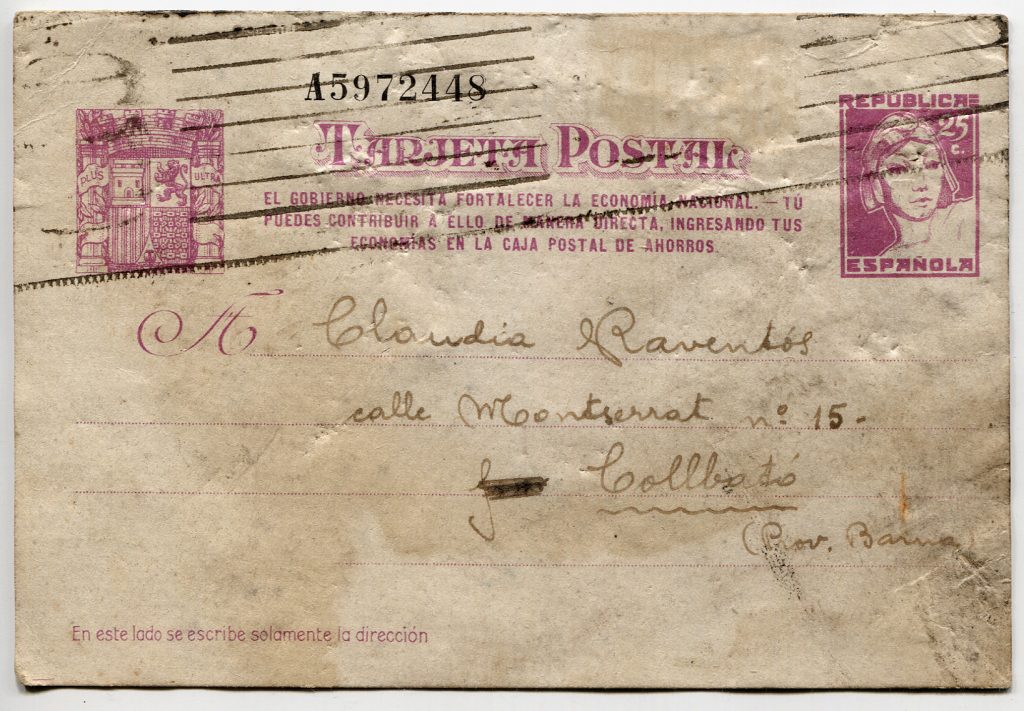 A5972448
TARJETA POSTAL
REPÚBLICA
25 c.
PLUS ULTRA
EL GOBIERNO NECESITA FORTALECER LA ECONOMÍA NACIONAL.—TÚ
PUEDES CONTRIBUIR A ELLO DE MANERA DIRECTA, INGRESANDO TUS
ECONOMÍAS EN LA CAJA POSTAL DE AHORROS.
ESPAÑOLA
A Claudia Raventós
calle Montserrat nº 15-
Collbató
(Prov. Barna)
En este lado se escribe solamente la dirección